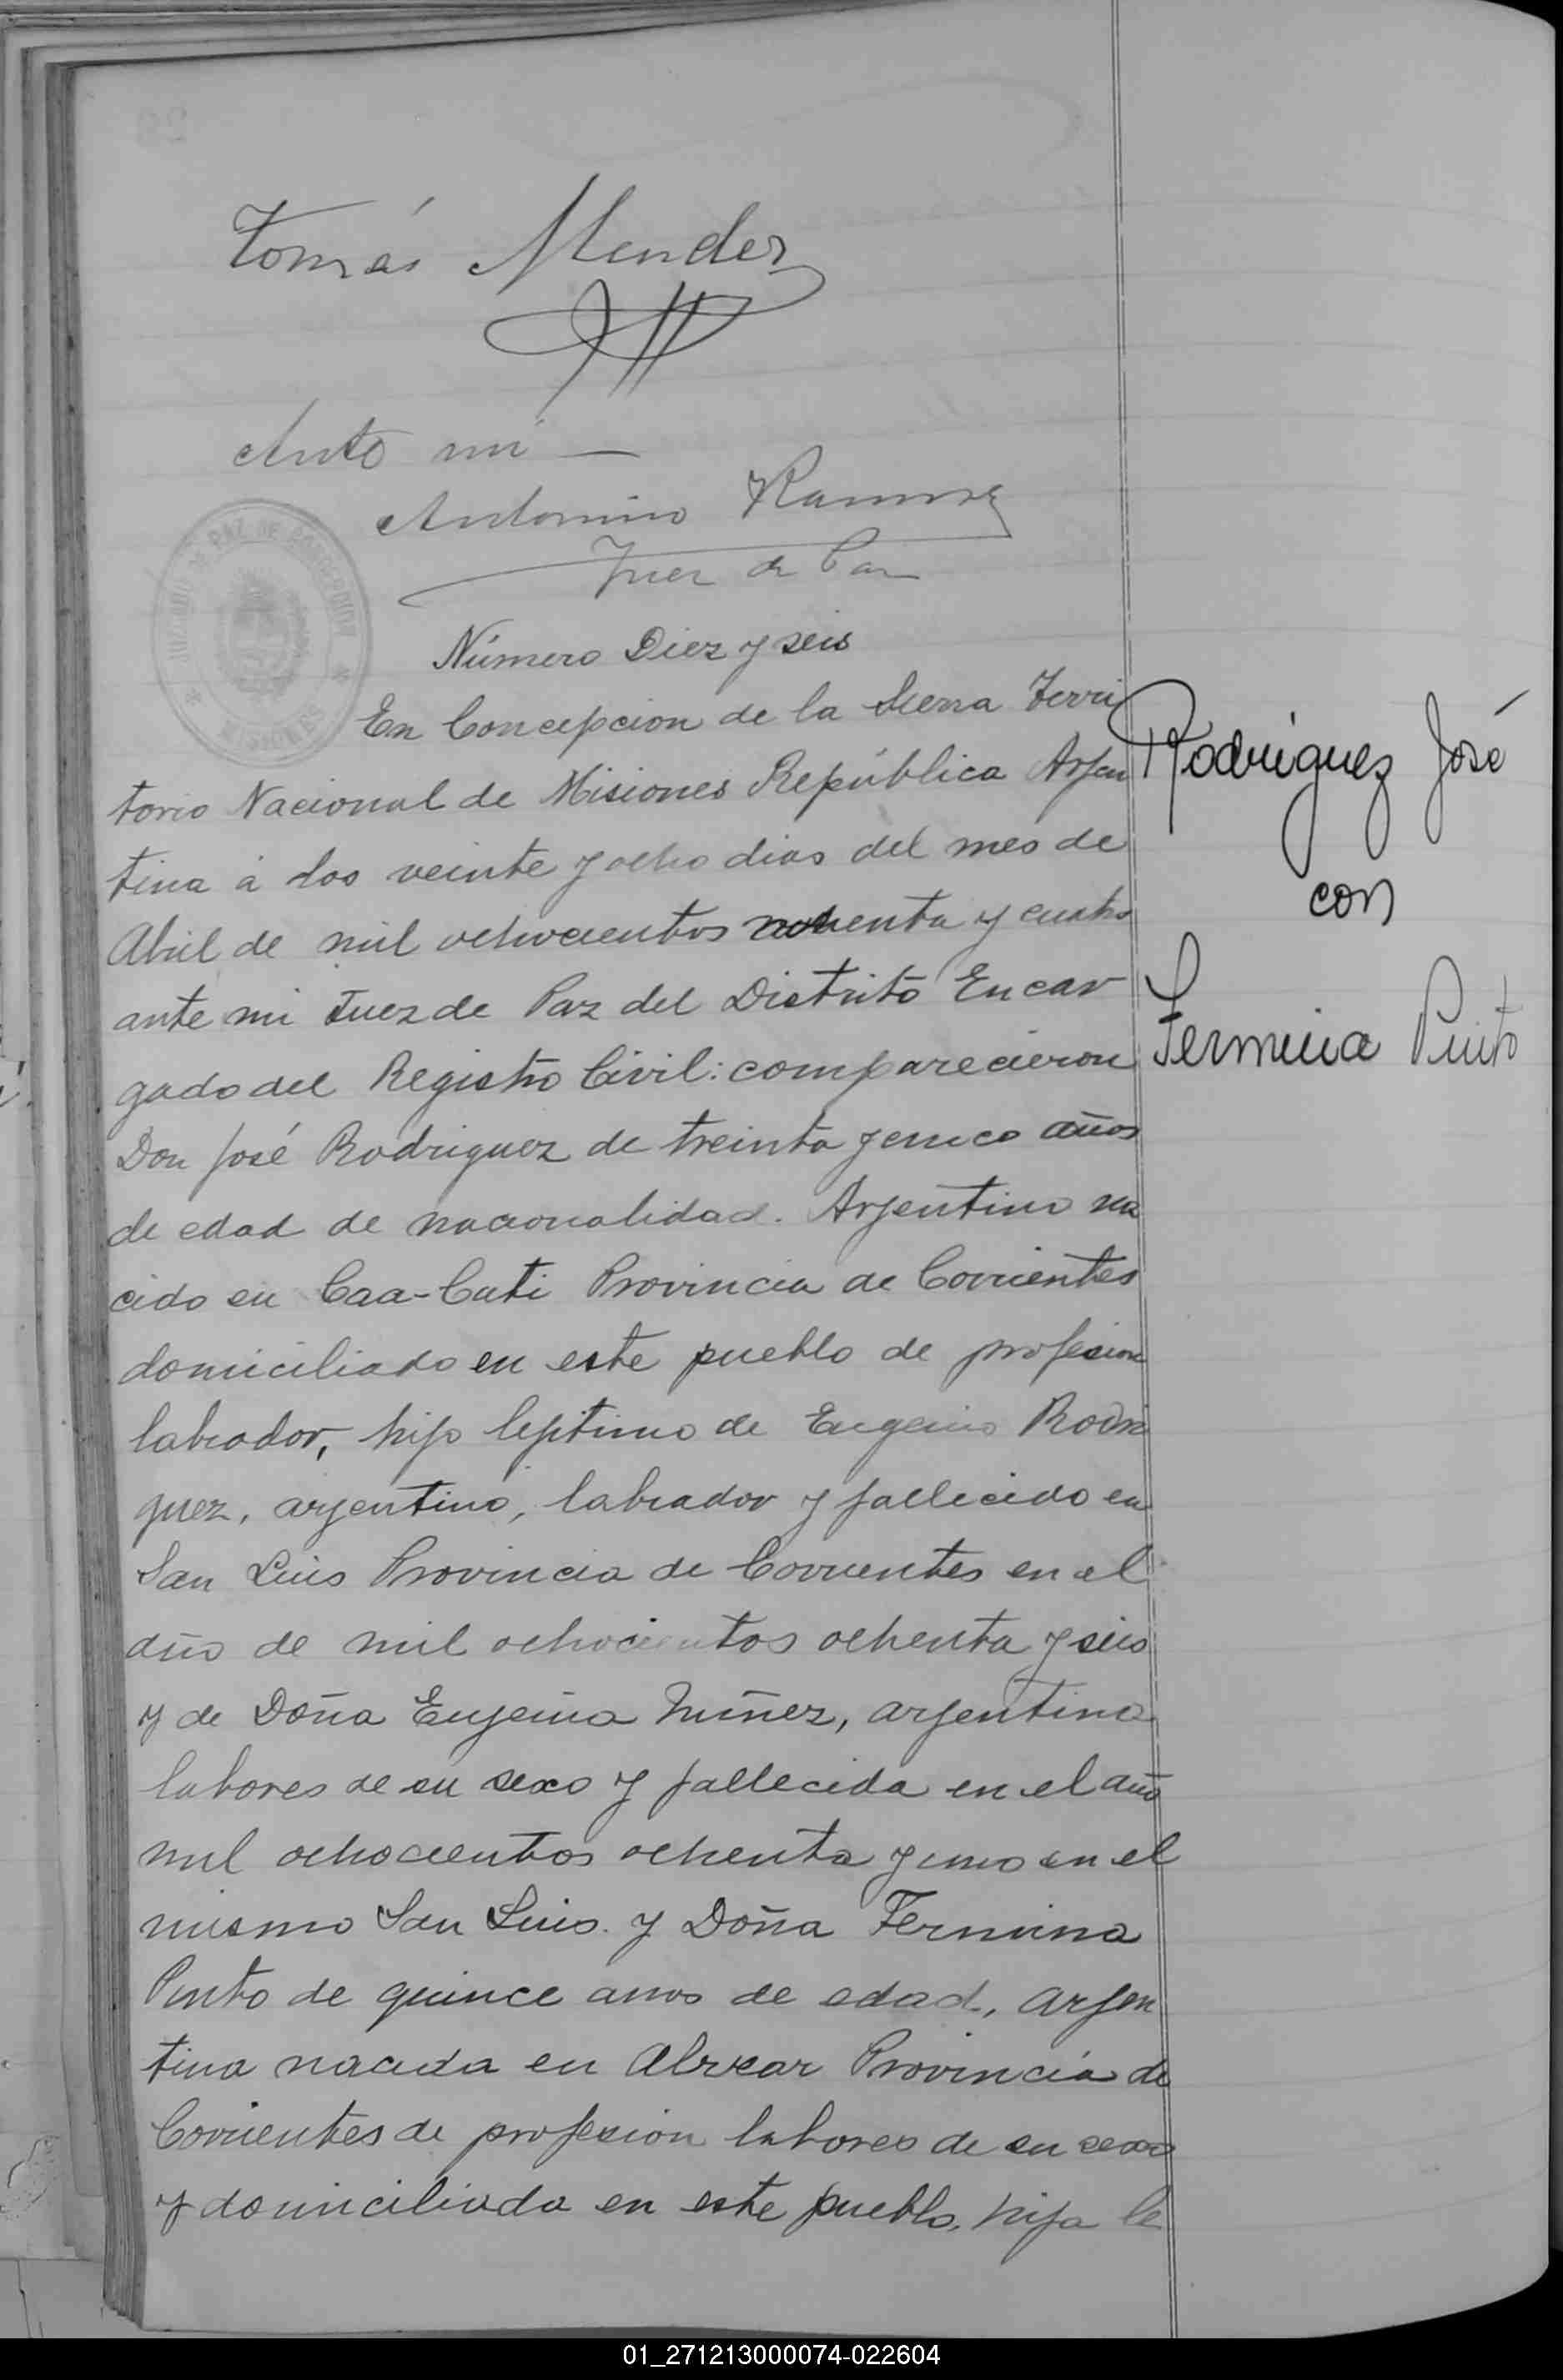 Tomás Mendez
Ante mi —
Antonino Ramirez
Juez de Paz
JUZGADO DE PAZ DE CONCEPCION
MISIONES
Número Diez y seis
En Concepcion de la Sierra Terri
torio Nacional de Misiones República Arjen
tina á los veinte y ocho dias del mes de
Abril de mil ochocientos noventa y cuatro
ante mi Juez de Paz del Distrito Encar
gado del Registro Civil: comparecieron
Don José Rodriguez de treinta y cinco años
de edad de nacionalidad. Arjentino na
cido en Caa-Cati Provincia de Corrientes
domiciliado en este pueblo de profesion
labrador, hijo lejitimo de Eugenio Rodri
guez, arjentino, labrador y fallecido en
San Luis Provincia de Corrientes en el
año de mil ochocientos ochenta y seis
y de Doña Eujenia Nuñez, arjentina
labores de su sexo y fallecida en el año
mil ochocientos ochenta y uno en el
mismo San Luis. y Doña Fermina
Pinto de quince anos de edad, arjen
tina nacida en Alvear Provincia de
Corrientes de profesion labores de su sexo
y domiciliada en este pueblo, hija le
Rodriguez José
con
Fermina Pinto
01_271213000074-022604